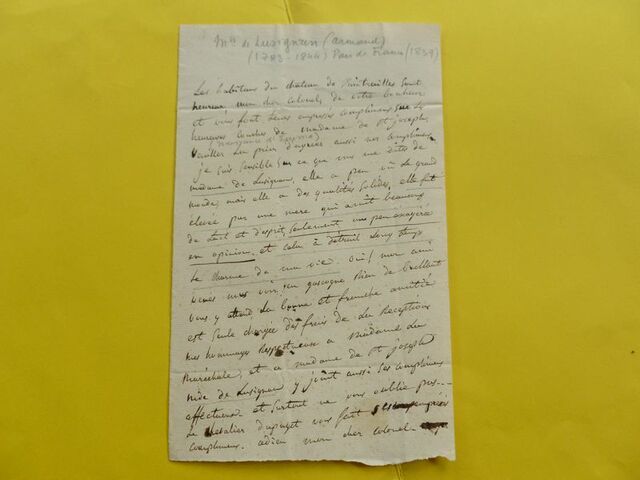 Mis de Lusignan (Armand)
(1783-1844) Pair de France (1839)
Les habitans du chateau de
heureux mon cher colonel, de votre bonheur
et vous font leurs empressés complimens sur les
heureuses couches de madame de St joseph,
veuillez la prier d'agréer aussi nos complimens
je suis sensible sur ce que vous me dites de
madame de Lusignan, elle a peu vu le grand
monde, mais elle a des qualités solides, elle fut
élevée par une mere qui avoit beaucoup
de tact et d'esprit, seulement un peu exagérée
en opinion, et cela a détruit long temps
le charme de ma vie. oui! mon ami
venez nous voir, en gascogne rien de brillant
vous y attend la bonne et franche amitié
est seule chargée des frais de la reception
mes hommages respectueux a madame la
maréchale, et a madame de St joseph
mde de Lusignan y joint aussi ses complimens
affectueux et surtout ne vous oublie pas...
le chevalier vous fait
complimens. adieu mon cher colonel